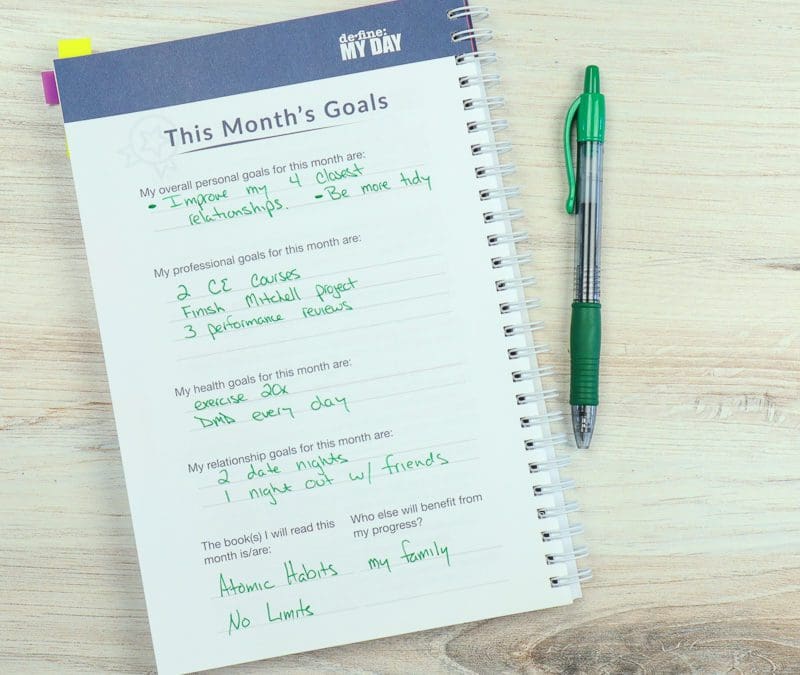 de•fine:
MY DAY
This Month's Goals
My overall personal goals for this month are:
• Improve my 4 closest
relationships. - Be more tidy
My professional goals for this month are:
2 CE Courses
Finish Mitchell project
3 performance reviews
My health goals for this month are:
exercise 20x
DMD every day
My relationship goals for this month are:
2 date nights
1 night out w/ friends
The book(s) I will read this
month is/are:
Atomic Habits
No Limits
Who else will benefit from
my progress?
my family